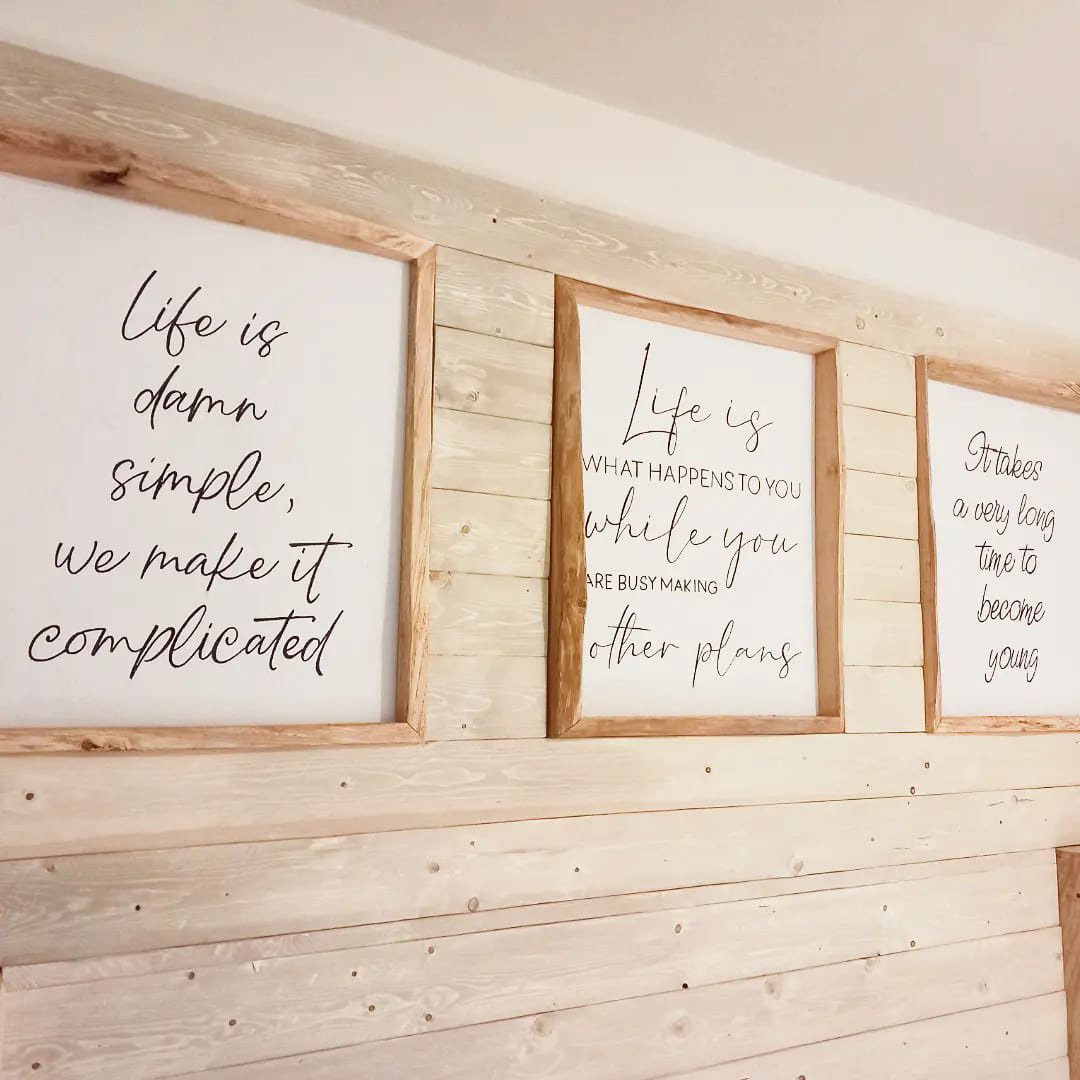 Life is
damn
simple,
we make it
complicated
Life is
WHAT HAPPENS TO YOU
while you
ARE BUSY MAKING
other plans
It takes
a very long
time to
become
young